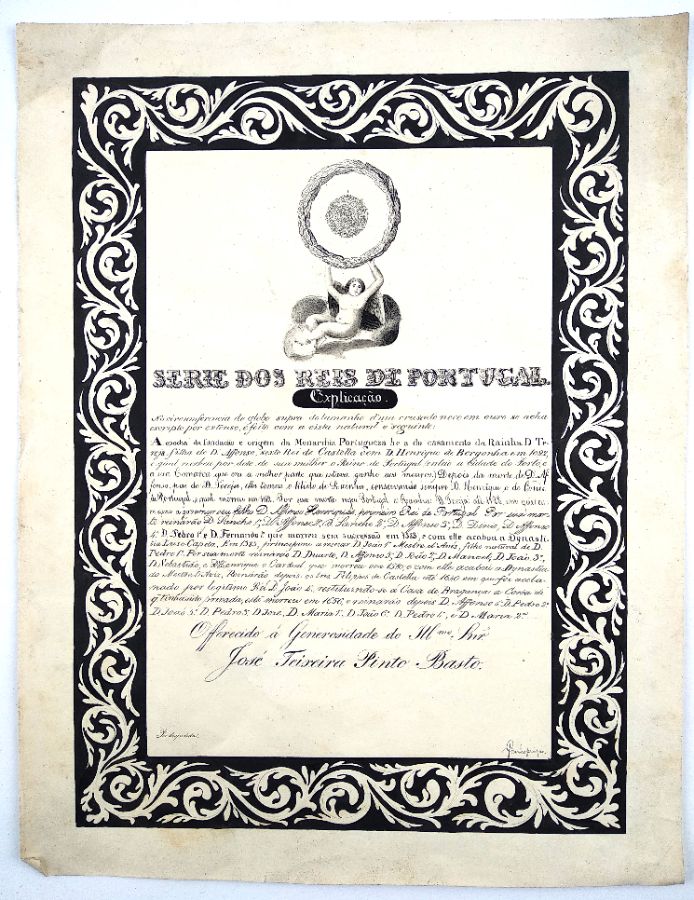 SERIE DOS REIS DE PORTUGAL.
Explicação.
Na circumferencia do globo supra do tamanho d'um cruzado novo em ouro se acha
escripto por extenso, e feito com a vista natural o seguinte:
A epocha da fundação e origem da Monarchia Portugueza he a do casamento da Rainha D. Te-
reja, filha de D. Affonso, sexto Rei de Castella com D. Henrique de Borgonha em 1092,
o qual recebeu por dote de sua mulher o Reino de Portugal, então a Cidade do Porto, e
a melhor parte que estava ganho aos mouros. Depois da morte de D. Af-
fonso, pae de D. Tereja, ella tomou o titulo de Rainha, conservando sempre D. Henrique o de Conde
de Portugal, o qual morreu em 1112. Por sua morte
D. Affonso Henriques, primeiro Rei de Portugal. Por sua mor-
te reinarão D. Sancho 1º, D. Affonso 2º, D. Sancho 2º, D. Affonso 3º, D. Diniz, D. Affonso
4º, D. Pedro 1º e D. Fernando 1º que morreu sem successão em 1383, e com elle acabou a Dynas-
tia de Capeta. Em 1385, principiou a reinar D. João 1º Mestre d'Aviz, filho natural de D.
Pedro 1º. Por sua morte reinarão D. Duarte, D. Affonso 5º, D. João 2º, D. Manoel, D. João 3º,
D. Sebastião, e D. Henrique o Cardeal que morreu em 1580, e com elle acabou a Dynastia
do Mestre d'Aviz, Reinarão depois os tres Filipes de Castella até 1640 em que foi accla-
mado por legitimo Rei D. João 4º, restituindo-se a Casa de Bragança a Coroa de
q' tinha sido privada, este morreu em 1656, e reinarão depois D. Affonso 6º D. Pedro 2º
D. João 5º D. José, D. Maria 1ª, D. João 6º, D. Pedro 4º, e D. Maria 2ª.
Offerecido à Generosidade do Illmo. Snr.
José Teixeira Pinto Basto.